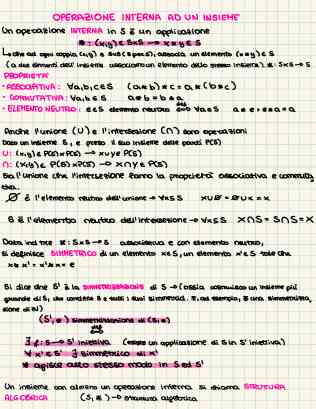 OPERAZIONE INTERNA AD UN INSIEME
Un operazione INTERNA in S è un applicazione
*: (x,y) ∈ S×S → x*y ∈ S
che ad ogni coppia (x,y) ∈ S×S associa un elemento (x*y) ∈ S
(a due elementi dell'insieme associamo un elemento dello stesso insieme). *: S×S → S
PROPRIETA'
- ASSOCIATIVA: ∀a,b,c∈S (a*b)*c = a*(b*c)
- COMMUTATIVA: ∀a,b∈S a*b = b*a
- ELEMENTO NEUTRO: e∈S elemento neutro ⟺ def ∀a∈S a*e = e*a = a
Anche l'unione (∪) e l'intersezione (∩) sono operazioni
Dato un insieme S, e preso il suo insieme delle parti P(S)
∪: (x,y) ∈ P(S)×P(S) → x∪y ∈ P(S)
∩: (x,y) ∈ P(S)×P(S) → x∩y ∈ P(S)
Sia l'unione che l'intersezione hanno la proprietà associativa e commuta
tiva.
∅ è l'elemento neutro dell'unione → ∀x⊆S x∪∅ = ∅∪x = x
S è l'elemento neutro dell'intersezione → ∀x⊆S x∩S = S∩x = x
Data *: S×S → S associativa e con elemento neutro,
si definisce SIMMETRICO di un elemento x∈S, un elemento x'∈S tale che
x*x' = x'*x = e
Si dice che S' è la SIMMETRIZZAZIONE di S → (ossia costruisco un insieme più
grande di S, che contiene S e tutti i suoi simmetrici. Z, ad esempio, è una simmetrizza
zione di N)
(S',*) simmetrizzazione di (S,*)
⟺ def
∃ f: S → S' iniettiva (esiste un applicazione di S in S' iniettiva)
∀ x'∈S' ∃ simmetrico di x'
* agisce allo stesso modo in S ed S'
Un insieme con almeno un operazione interna si chiama STRUTTURA
ALGEBRICA (S,*) → struttura algebrica